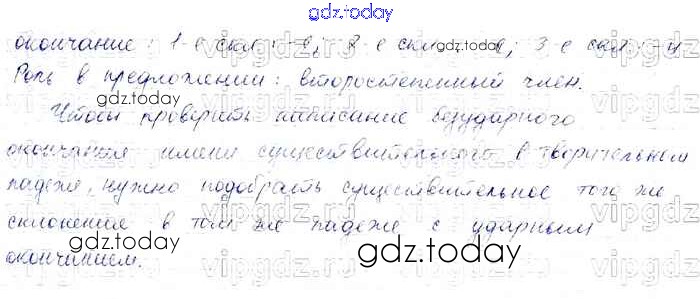 gdz.today
окончание: 1-е скл.: -е; 2-е скл.: -е; 3-е скл.: -и
Роль в предложении: второстепенный член.
gdz.today
vipgdz
Чтобы проверить написание безударного
окончания имени существительного в творительном
падеже, нужно подобрать существительное того же
склонения в том же падеже с ударным
gdz.today
gdz.today
окончанием.